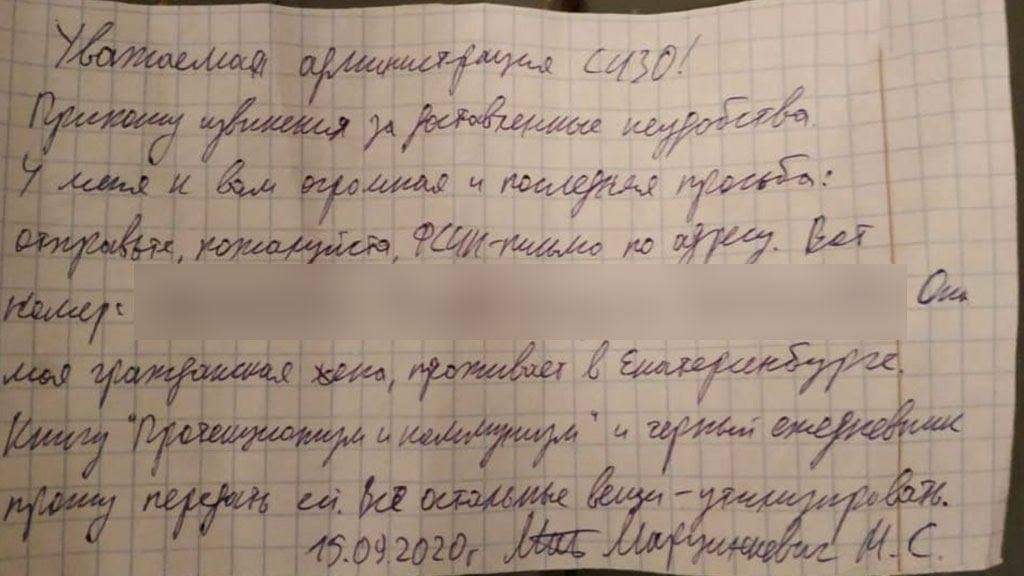 Уважаемая администрация СИЗО!
Приношу извинения за доставленные неудобства.
У меня к вам огромная и последняя просьба:
отправьте, пожалуйста, ФСИН-письмо по адресу. Вот
номер: Она
моя гражданская жена, проживает в Екатеринбурге.
Книгу "Протекционизм и коммунизм" и черный ежедневник
прошу передать ей. Всё остальные вещи - утилизировать.
15.09.2020г Марцинкевич М.С.